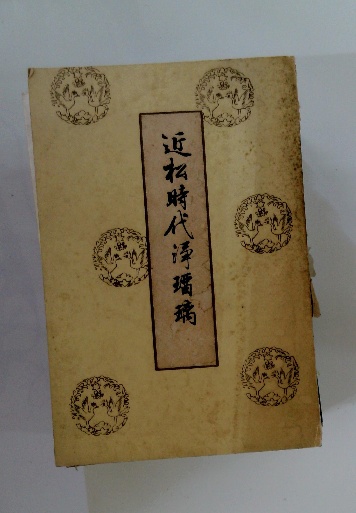 近松時代浄瑠璃